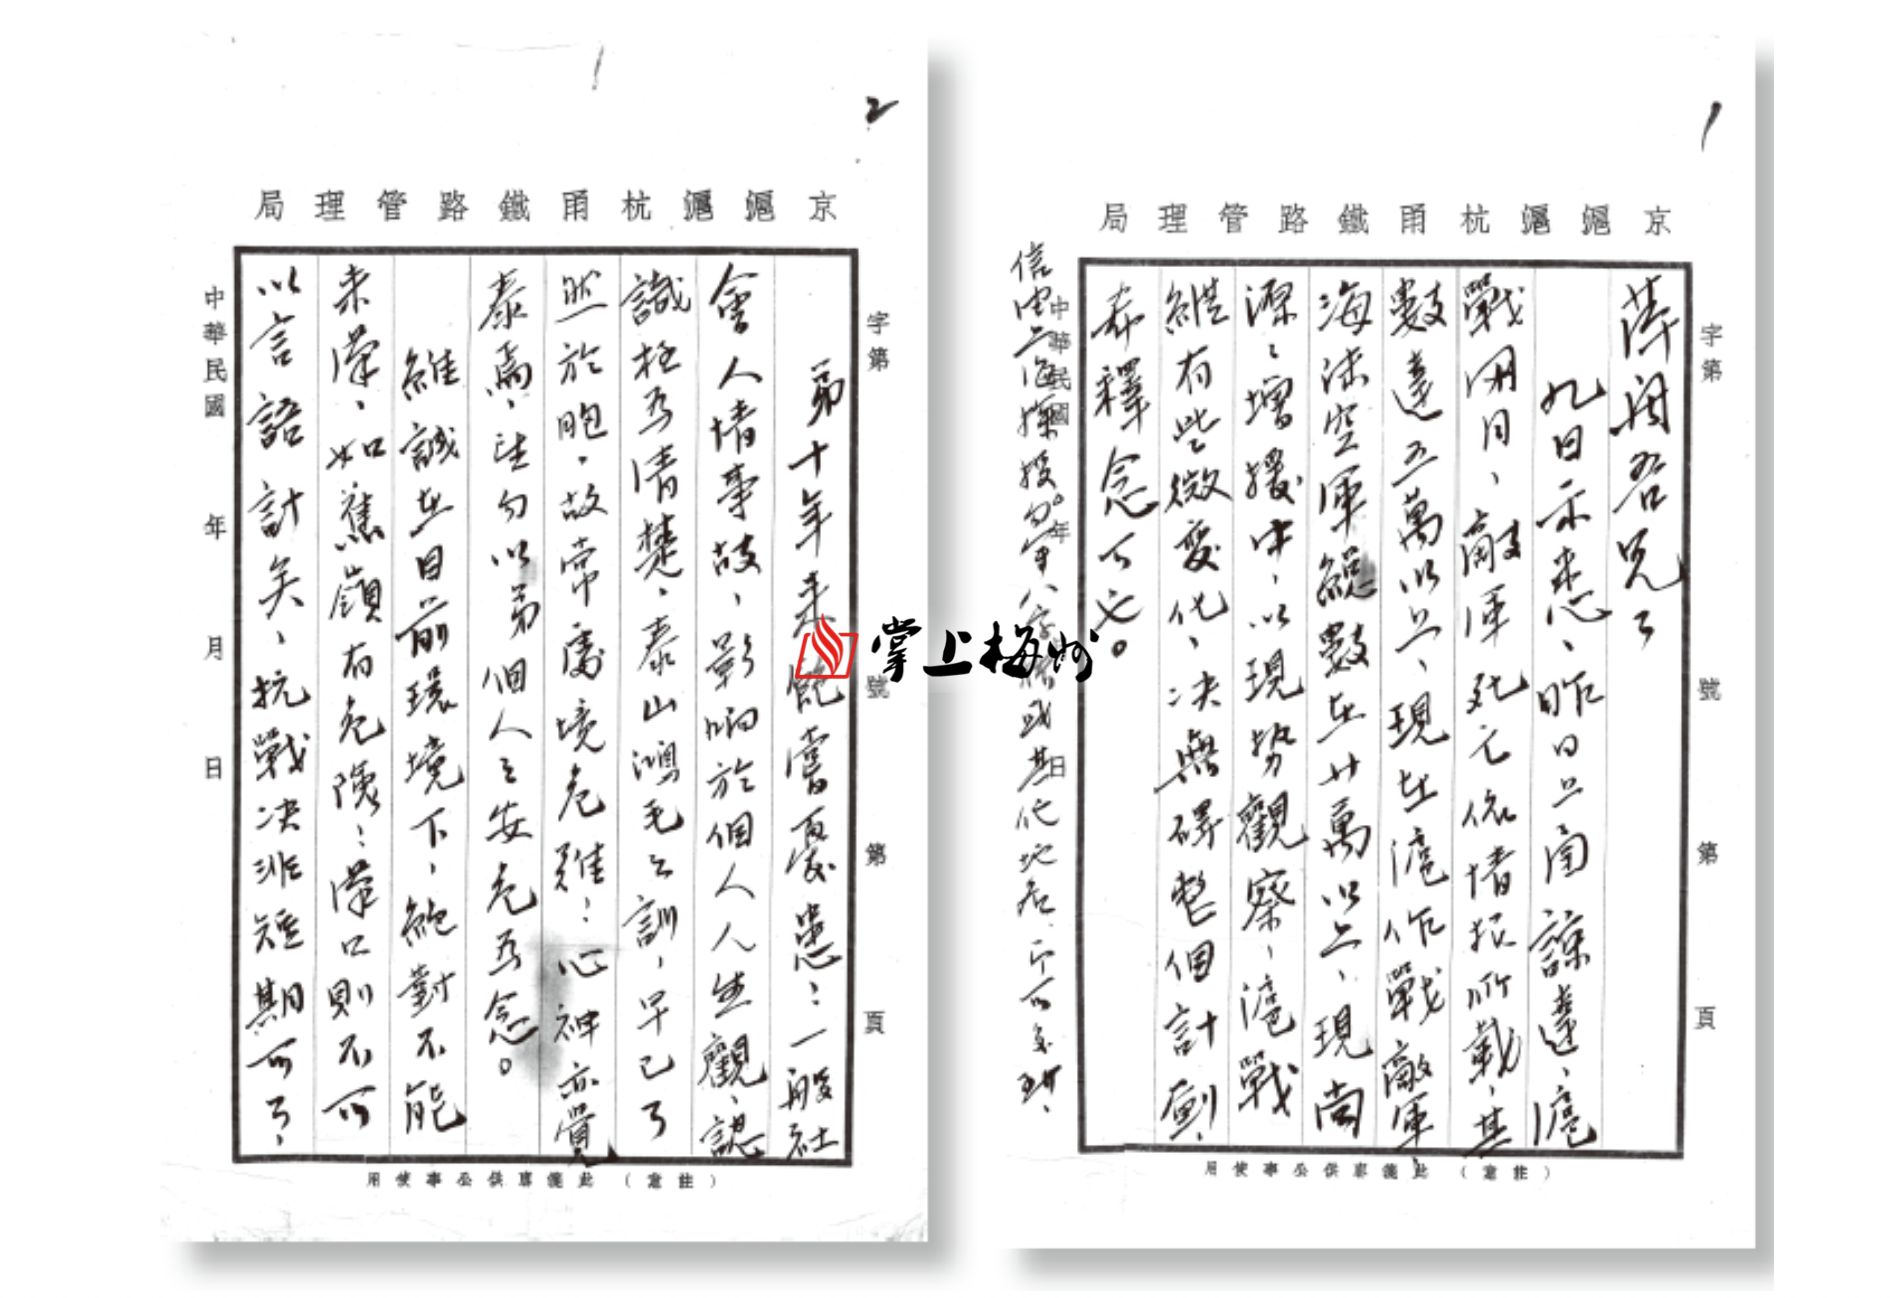 1
京滬滬杭甬鐵路管理局
字第 號 第 頁
吾兄
九日示悉、昨日上函諒達、滬
戰開月、敵軍死亡依情报所載、其
數達五萬以上、現在滬作戰敵軍、
海陸空軍總數在廿萬以上、現尚
源源增援中、以現勢觀察、滬戰
縱有些微變化、決無碍整個計劃、
希釋念可也。
中華民國 年 月 日
信由上海
(注意)此箋專供公事使用
2
京滬滬杭甬鐵路管理局
字第 號 第 頁
弟十年來飽嘗憂患:一般社
會人情事故、影响於個人人生觀、認
識極為清楚、泰山鴻毛之訓、早已了
然於胞、故常處境危難:心神亦覺
泰焉、望勿以弟個人之安危為念。
維誠在目前環境下、絕對不能
來滬、如蕉嶺有危險:漢口則不可
以言語計矣、抗戰決非短期可了、
中華民國 年 月 日
(注意)此箋專供公事使用
掌上梅州